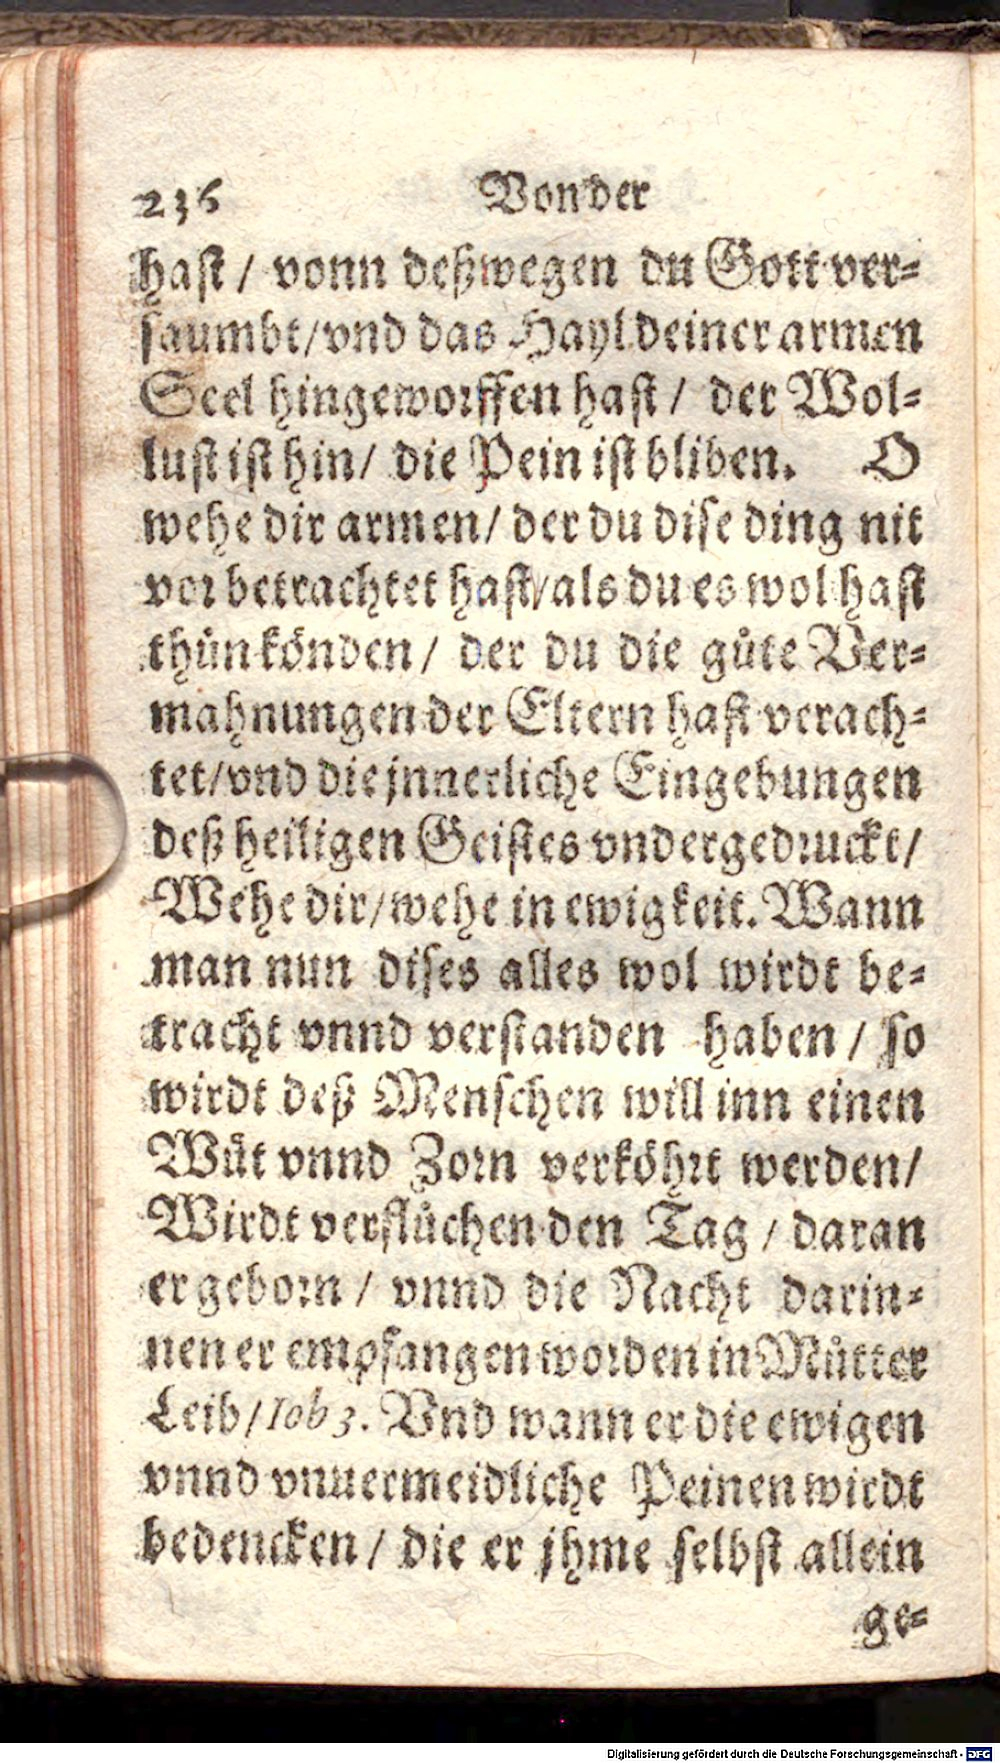 236 Von der
hast / vonn deßwegen du Gott ver-
saumbt/vnd das Hayl deiner armen
Seel hingeworffen hast / der Wol-
lust ist hin/ die Pein ist bliben. O
wehe dir armen/ der du dise ding nit
vor betrachtet hast/als du es wol hast
thůn könden / der du die gůte Ver-
mahnungen der Eltern hast verach-
tet/vnd die jnnerliche Eingebungen
deß heiligen Geistes vndergedruckt/
Wehe dir/wehe in ewigkeit. Wann
man nun dises alles wol wirdt be-
tracht vnnd verstanden haben / so
wirdt deß Menschen will inn einen
Wůt vnnd Zorn verköhrt werden/
Wirdt verflůchen den Tag / daran
er geborn / vnnd die Nacht darin-
nen er empfangen worden in Můtter
Leib/Iob 3. Vnd wann er die ewigen
vnnd vnuermeidliche Peinen wirdt
bedencken / die er jhme selbst allein
ge-
Digitalisierung gefördert durch die Deutsche Forschungsgemeinschaft - DFG